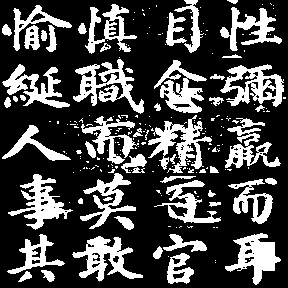 性彌羸而耳
目愈精百官
慎職而莫敢
愉綖人事其